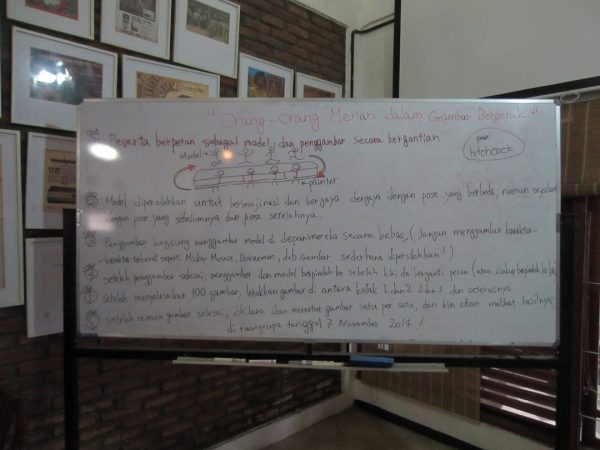 "Orang-Orang Menari dalam Gambar Bergerak"
Peserta berperan sebagai model, dan penggambar secara bergantian
Model
painter
hitchcock
Model dipersilahkan untuk berimajinasi dan bergaya dengan pose yang berbeda, namun sejalan
dengan pose yang sebelumnya dan pose setelahnya.
Penggambar langsung menggambar model di depan mereka secara bebas, (Jangan menggambar karakter-
karakter terkenal seperti Mickey Mouse, Doraemon, dsb. Gambar sederhana dipersilahkan!)
setelah penggambar selesai, penggambar dan model berpindah ke sebelah kiri
setelah menyelesaikan 100 gambar, letakkan gambar di antara kotak 1 dan 2, 2 dan 3, dan seterusnya.
setelah semua gambar selesai, akan memotret gambar satu per satu, dan kita akan melihat hasilnya
di ruangrupa tanggal 7 November 2014!